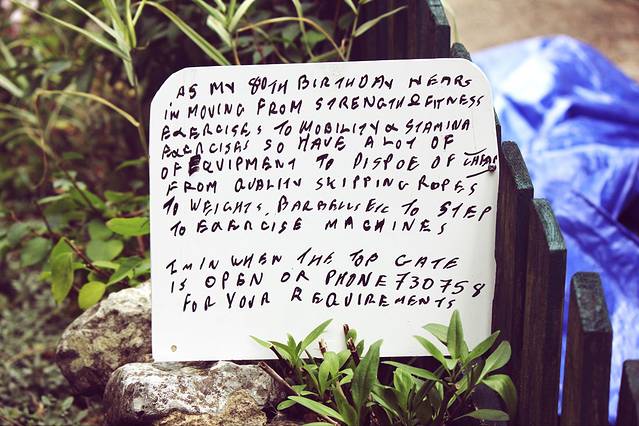 AS MY 80TH BIRTHDAY NEARS
I'M MOVING FROM STRENGTH & FITNESS
EXERCISES TO MOBILITY & STAMINA
EXERCISES SO HAVE A LOT OF
OF EQUIPMENT TO DISPOE OF CHEAP
FROM QUALITY SKIPPING ROPES
TO WEIGHTS, BARBELLS ETC TO STEP
TO EXERCISE MACHINES
I'M IN WHEN THE TOP GATE
IS OPEN OR PHONE 730758
FOR YOUR REQUIREMENTS